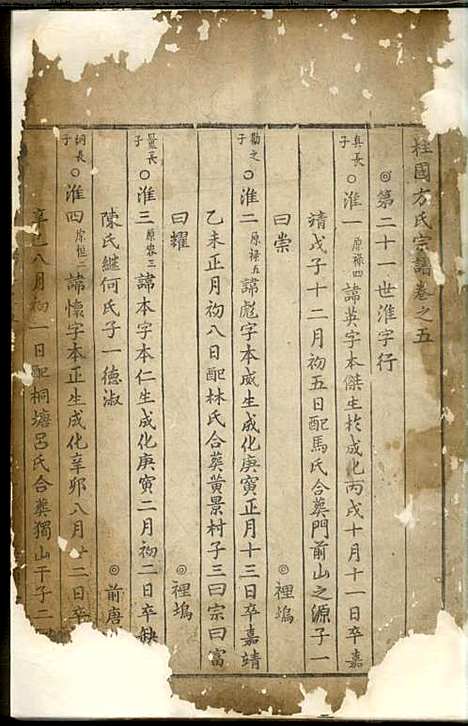 柱國方氏宗譜卷之五
◎第二十一世淮字行
真長子 ○淮一 原祿四 諱英字本傑生於成化丙戌十月十一日卒嘉
靖戊子十二月初五日配馬氏合葬門前山之源子一
曰崇 ◎裡塢
勸之子 ○淮二 原祿五 諱彪字本威生成化庚寅正月十三日卒嘉靖
乙未正月初八日配林氏合葬黃景村子三曰宗曰富
曰耀 ◎裡塢
長子 ○淮三 原 三 諱本字本仁生成化庚寅二月初二日卒缺
陳氏繼何氏子一德淑 ◎前唐
長子 ○淮四 原恒二 諱懷字本正生成化辛卯八月十二日卒
辛巳八月初一日配桐塘呂氏合葬獨山干子二